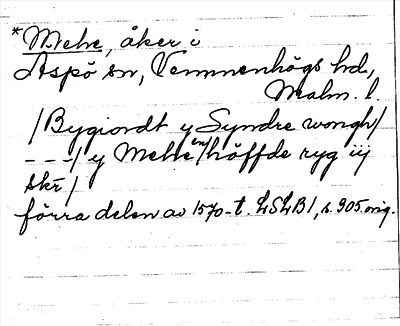 *Mehe, åker i
Aspö sn, Vemmenhögs hd,
Malm. l.
/Bygiordt y Syndre wongh/
---/ y Mehe en/höffde ryg iij
skr̄/
förra delen av 1570-t. LSLB1, s. 905 orig.